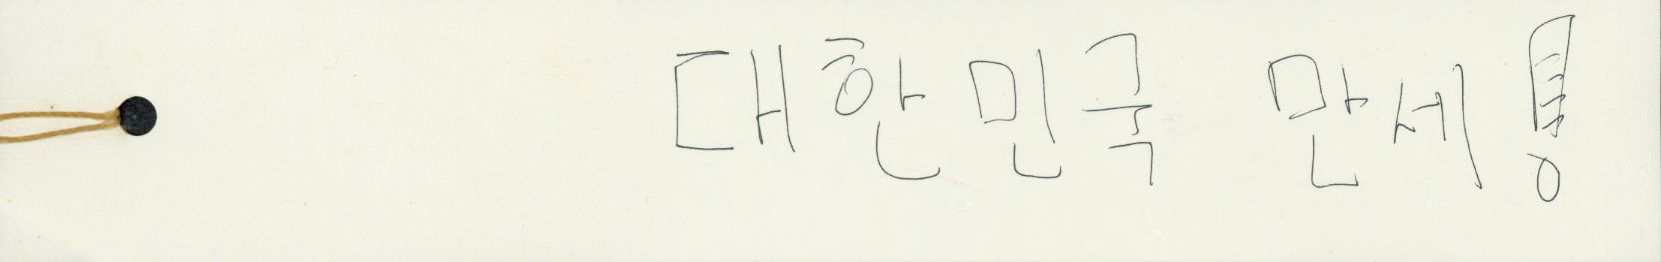 대한민국 만세!